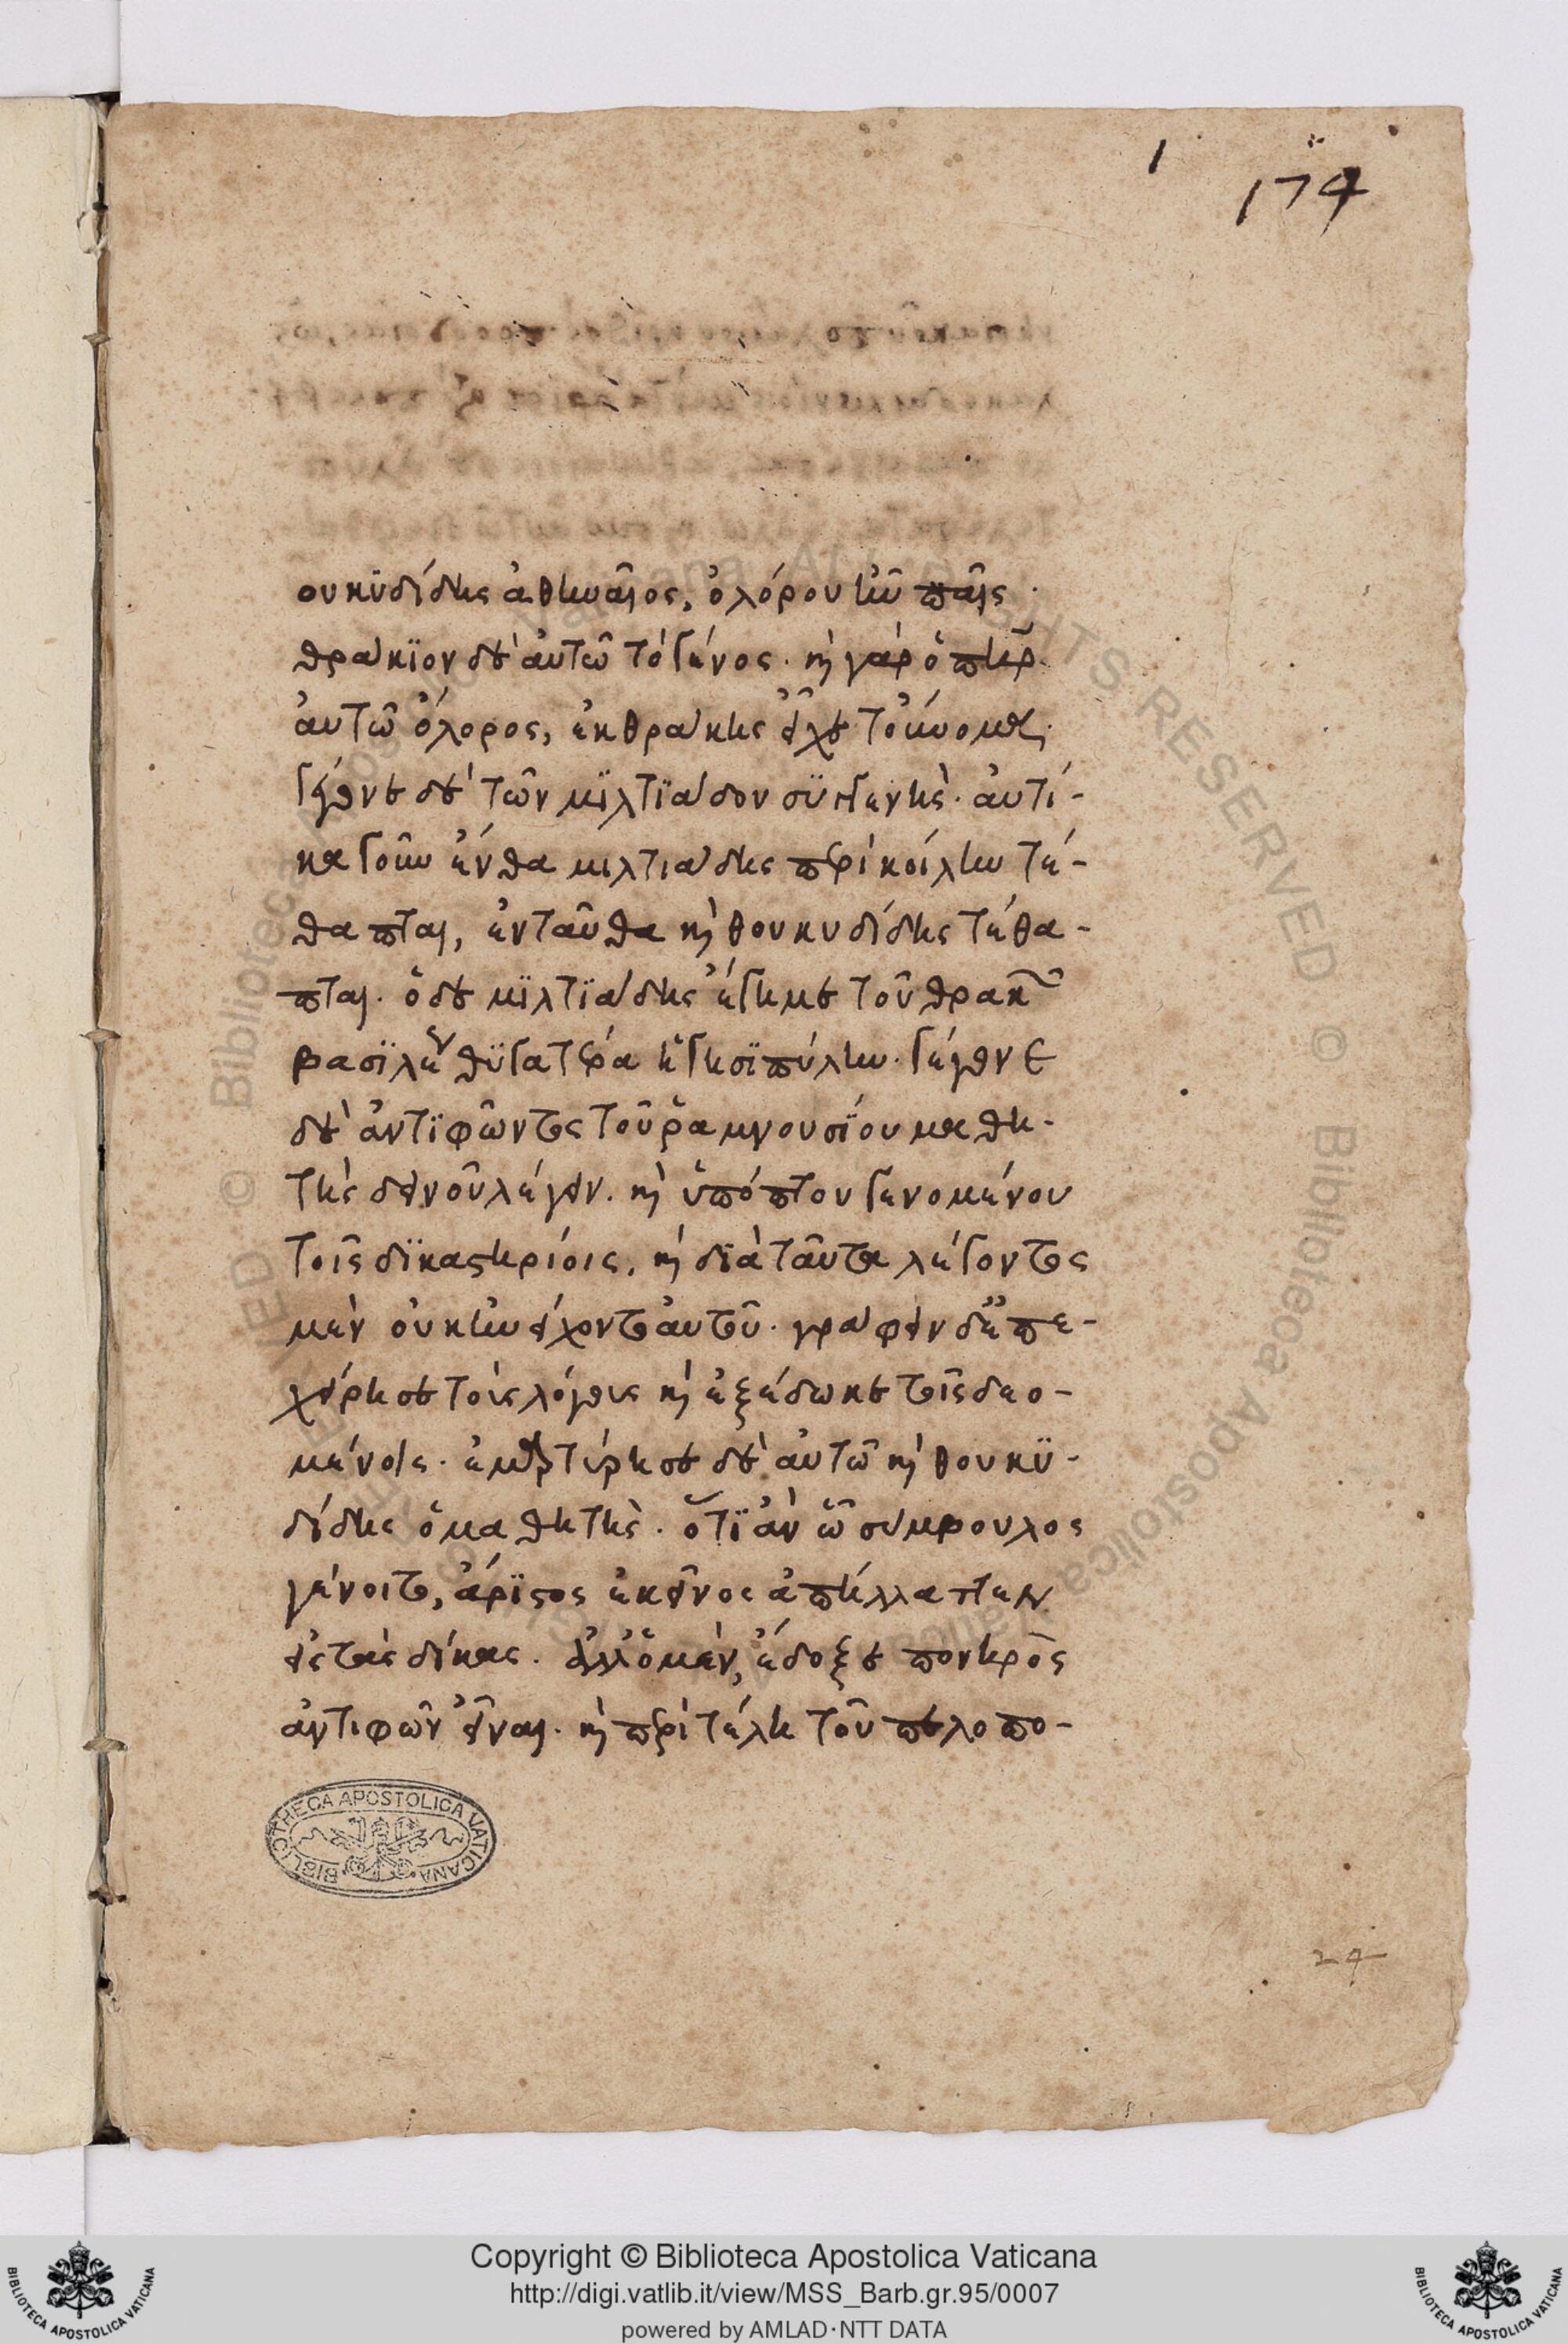 1
174
ουκϋδίδης ἀθηναῖος, ὀλόρου ἦν παῖς·
θράκϊον δὲ αὐτῶ τὸ γένος· κ γὰρ ὁ πηρ
ἀυτῶ ὄλορος, ἐκ θράκης εἶχε τοὔνομα·
γέγονε δὲ τῶν μϊλτϊάδου σϋγγενὴς· ἀυτί-
κα γοῦν ἔνθα μιλτιάδης περὶ κοίλην τέ-
θαπται, ἐνταῦθα κ θουκυδίδης τέθα-
πται. ὁ δὲ μϊλτϊάδης ἔγημε τοῦ θρακῶν
βασϊλέως θϋγατέρα ἡγησϊπύλην. γέγονε
δὲ ἀντϊφῶντος τοῦ ῥαμνουσΐου μαθη-
τὴς δεινοῦ λέγειν. κ ὑπόπτου γενομένου
τοῖς δϊκαστηρίοις, κ δϊὰ ταῦτα λέγοντος
μὲν οὐκ ἠνείχοντο ἀυτοῦ. γράφειν δ' ἐπε-
χείρησε τοὺς λόγους κ ἐξέδωκε τοῖς δεο-
μένοις. ἐμαρτύρησε δὲ αὐτῶ κ θουκϋ-
δίδης ὁ μαθητὴς. ὅτϊ ἂν ὧ σύμβουλος
γένοιτο, ἄρϊστος ἐκεῖνος ἀπήλλαττεν
εἰς τὰς δίκας. ἀλλ' ὁ μὲν, ἔδοξε πονηρὸς
ἀντιφῶν εἶναι. κ περὶ τέλη τοῦ πελοπο-
BIBLIOTHECA APOSTOLICA VATICANA
24
Copyright © Biblioteca Apostolica Vaticana
http://digi.vatlib.it/view/MSS_Barb.gr.95/0007
powered by AMLAD·NTT DATA